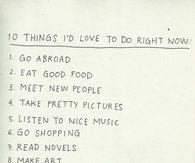 10 THINGS I'D LOVE TO DO RIGHT NOW:
1. GO ABROAD
2. EAT GOOD FOOD
3. MEET NEW PEOPLE
4. TAKE PRETTY PICTURES
5. LISTEN TO NICE MUSIC
6. GO SHOPPING
7. READ NOVELS
8. MAKE ART